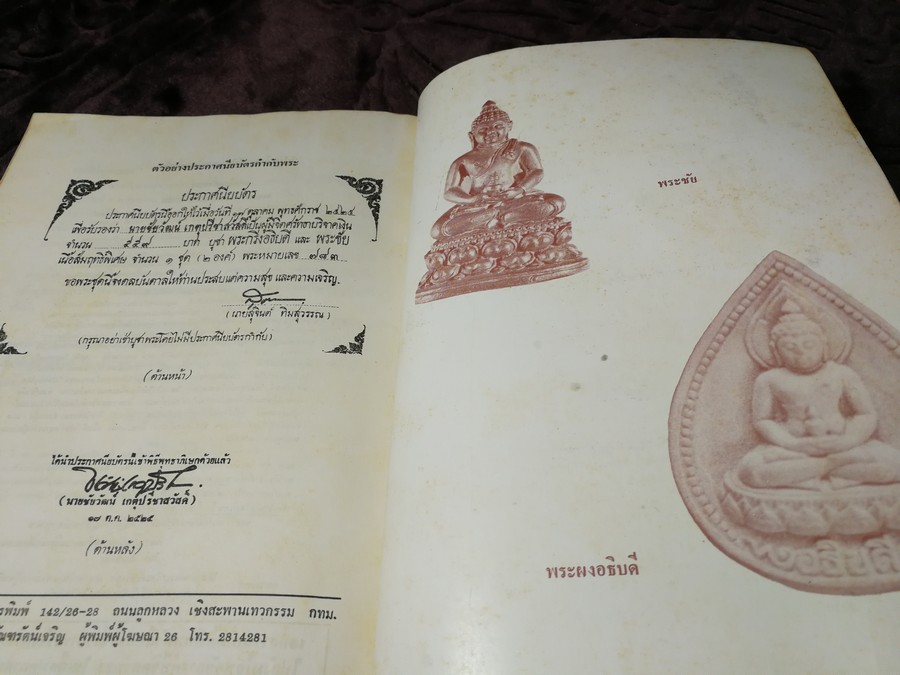 ตัวอย่างประกาศนียบัตรกำกับพระ
ประกาศนียบัตร
ประกาศนียบัตรนี้ออกให้ไว้เมื่อวันที่ ๑๗ ตุลาคม พุทธศักราช ๒๕๒๕
เพื่อรับรองว่า นายชัยวัฒน์ เกตุปรีชาสวัสดิ์เป็นผู้มีจิตศรัทธาบริจาคเงิน
จำนวน ๕๕๙ บาท บูชา พระกริ่งอธิบดี และ พระชัย
เนื้อสัมฤทธิ์พิเศษ จำนวน ๑ ชุด (๒ องค์) พระหมายเลข ๗๘๓
ขอพระชุดนี้จงดลบันดาลให้ท่านประสบแต่ความสุข และความเจริญ.
(นายสุจินต์ ทิมสุวรรณ)
(กรุณาอย่าเช่าบูชาพระโดยไม่มีประกาศนียบัตรกำกับ)
(ด้านหน้า)
ได้นำประกาศนียบัตรนี้เข้าพิธีพุทธาภิเษกด้วยแล้ว
(นายชัยวัฒน์ เกตุปรีชาสวัสดิ์)
๑๗ ต.ค. ๒๕๒๕
(ด้านหลัง)
142/26-28 ถนนลูกหลวง เชิงสะพานเทวกรรม กทม.
ผู้พิมพ์ผู้โฆษณา 26 โทร. 2814281
พระชัย
พระผงอธิบดี